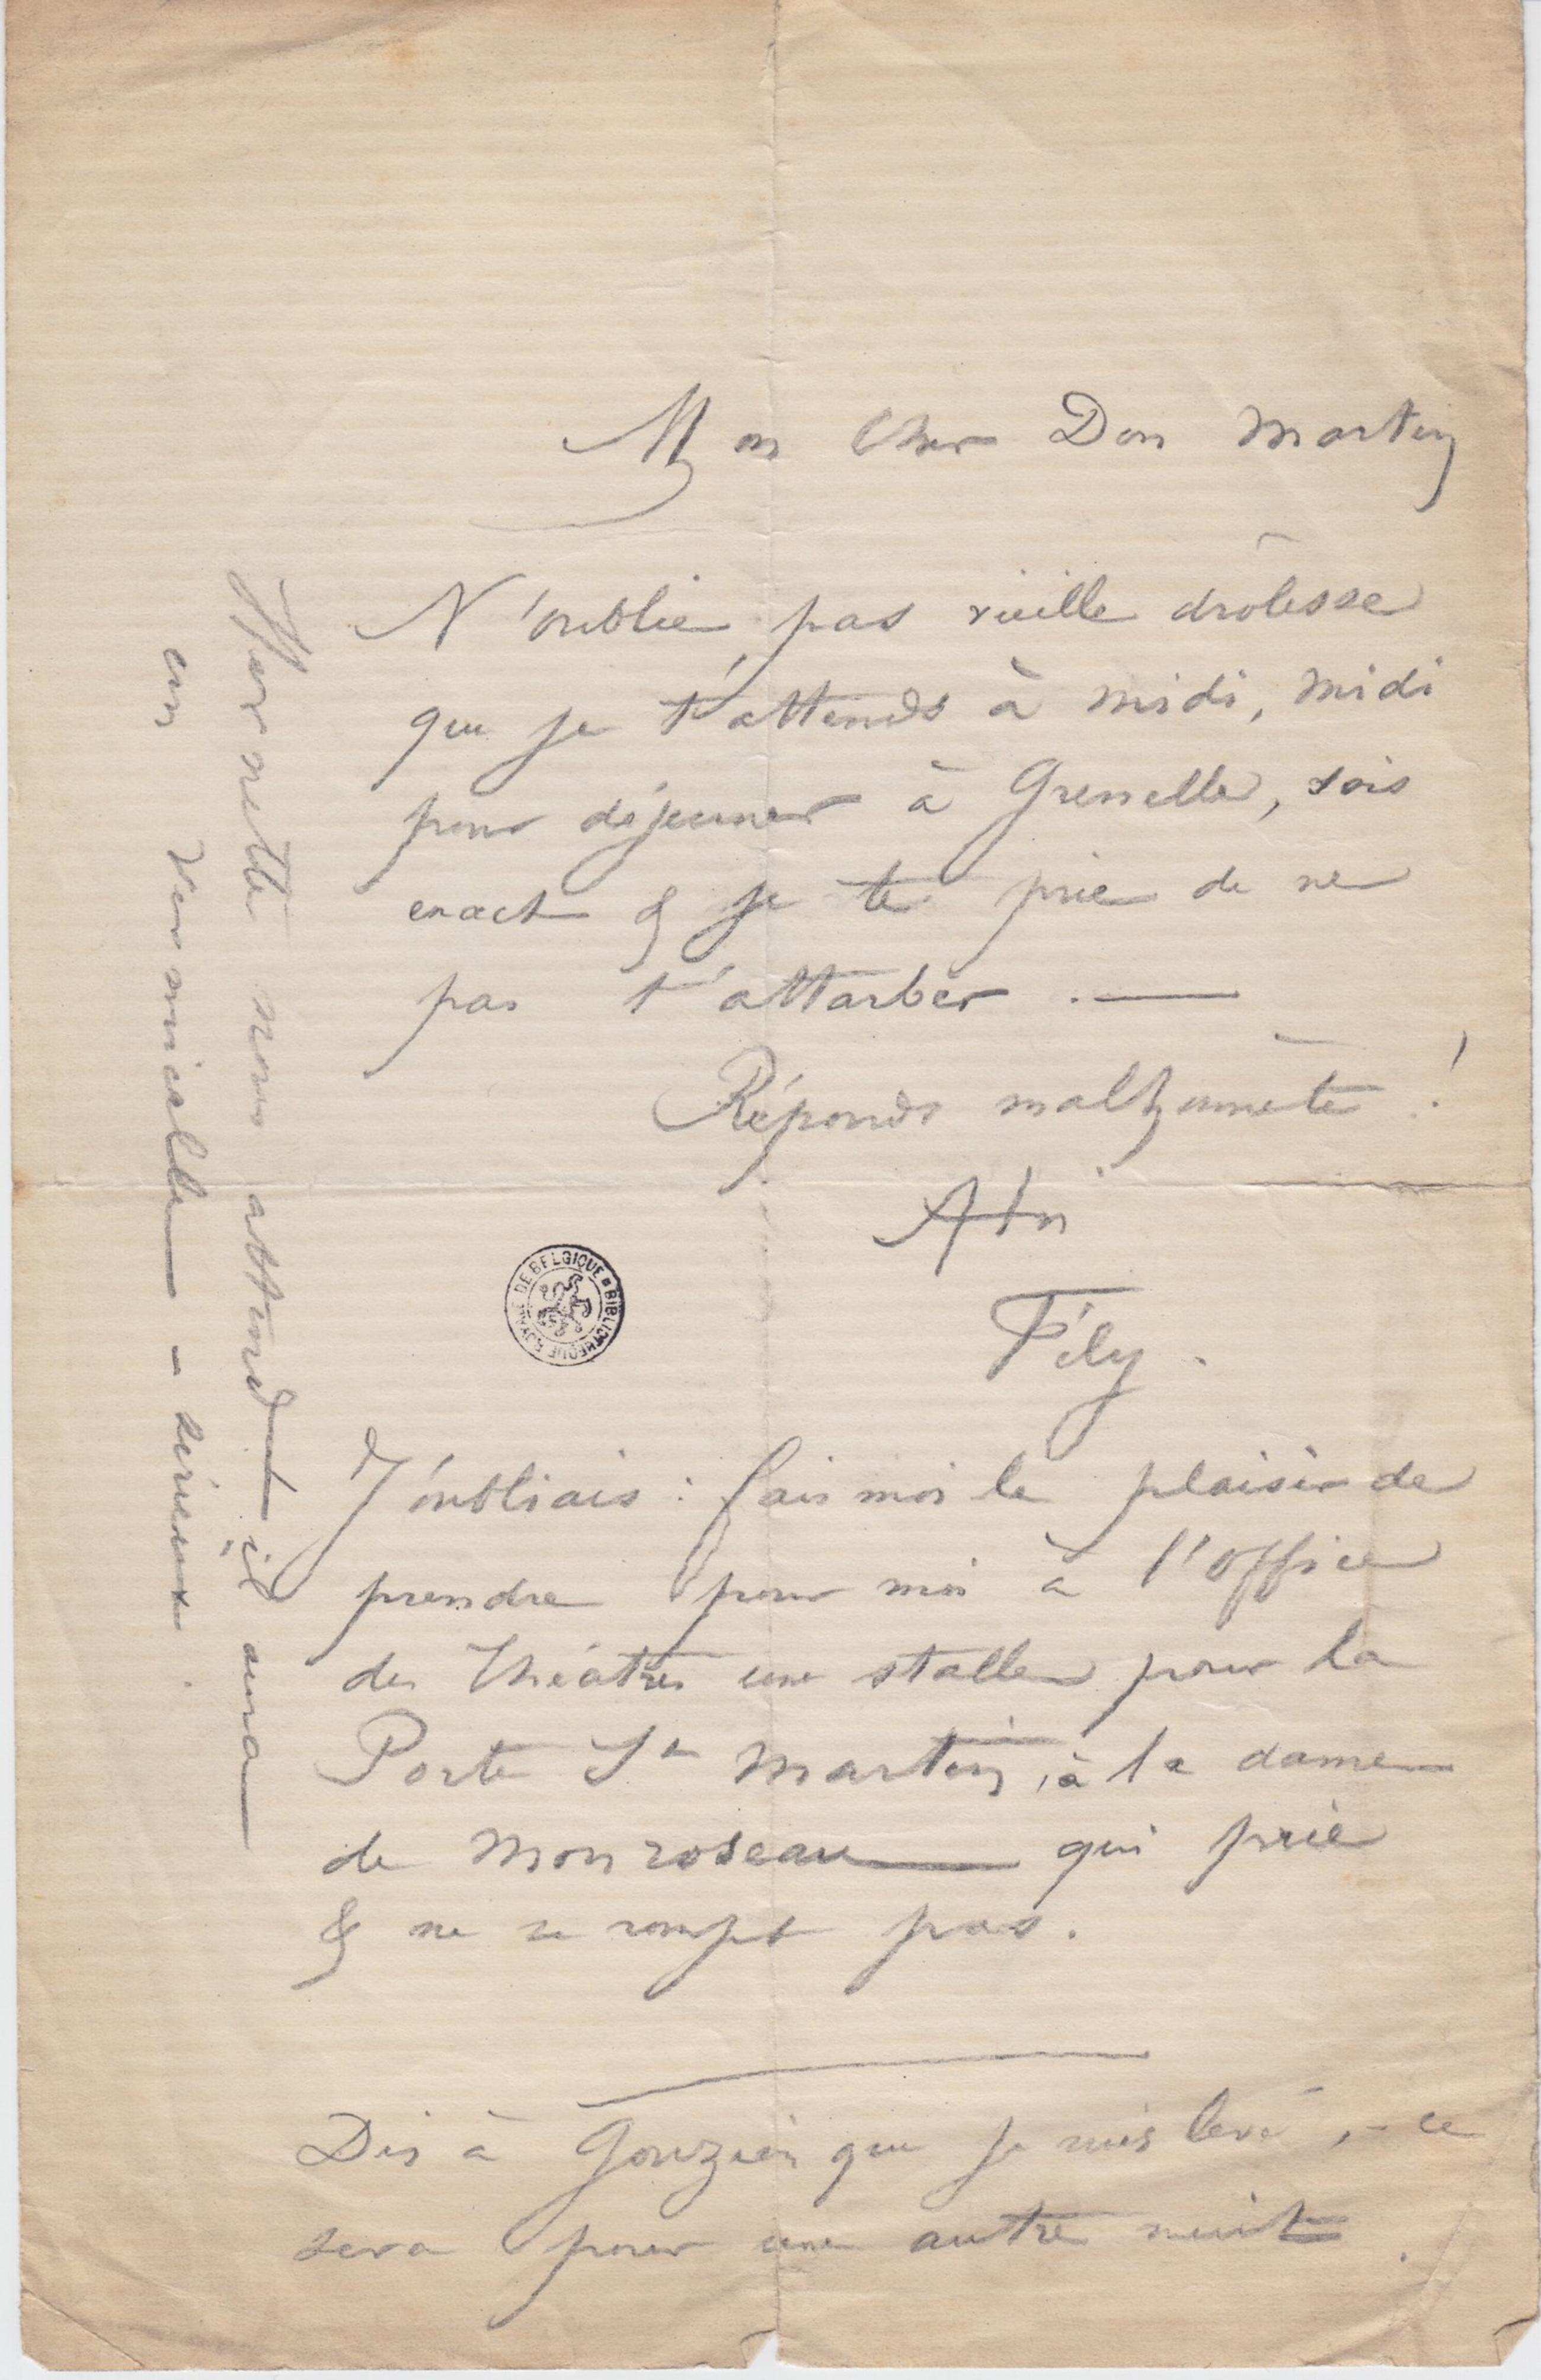 Mon Cher Don Martin
N'oublie pas vieille drôlesse
que je t'attends à midi, midi
pour déjeuner à Grenelle, sois
exact & je te prie de ne
pas t'attarber . —
Réponds malhonnête !
à tn
Fély .
J'oubliais : fais moi le plaisir de
prendre pour moi à l'office
des théâtres une stalle pour la
Porte St Martin, à la dame
de Monroseau qui prie
& ne se rompt pas.
Dis à Gouzien que je suis levé, – ce
sera pour une autre nuit .
nous attend il aura
un Vermicelle – sérieux .
BIBLIOTHÈQUE ROYALE DE BELGIQUE